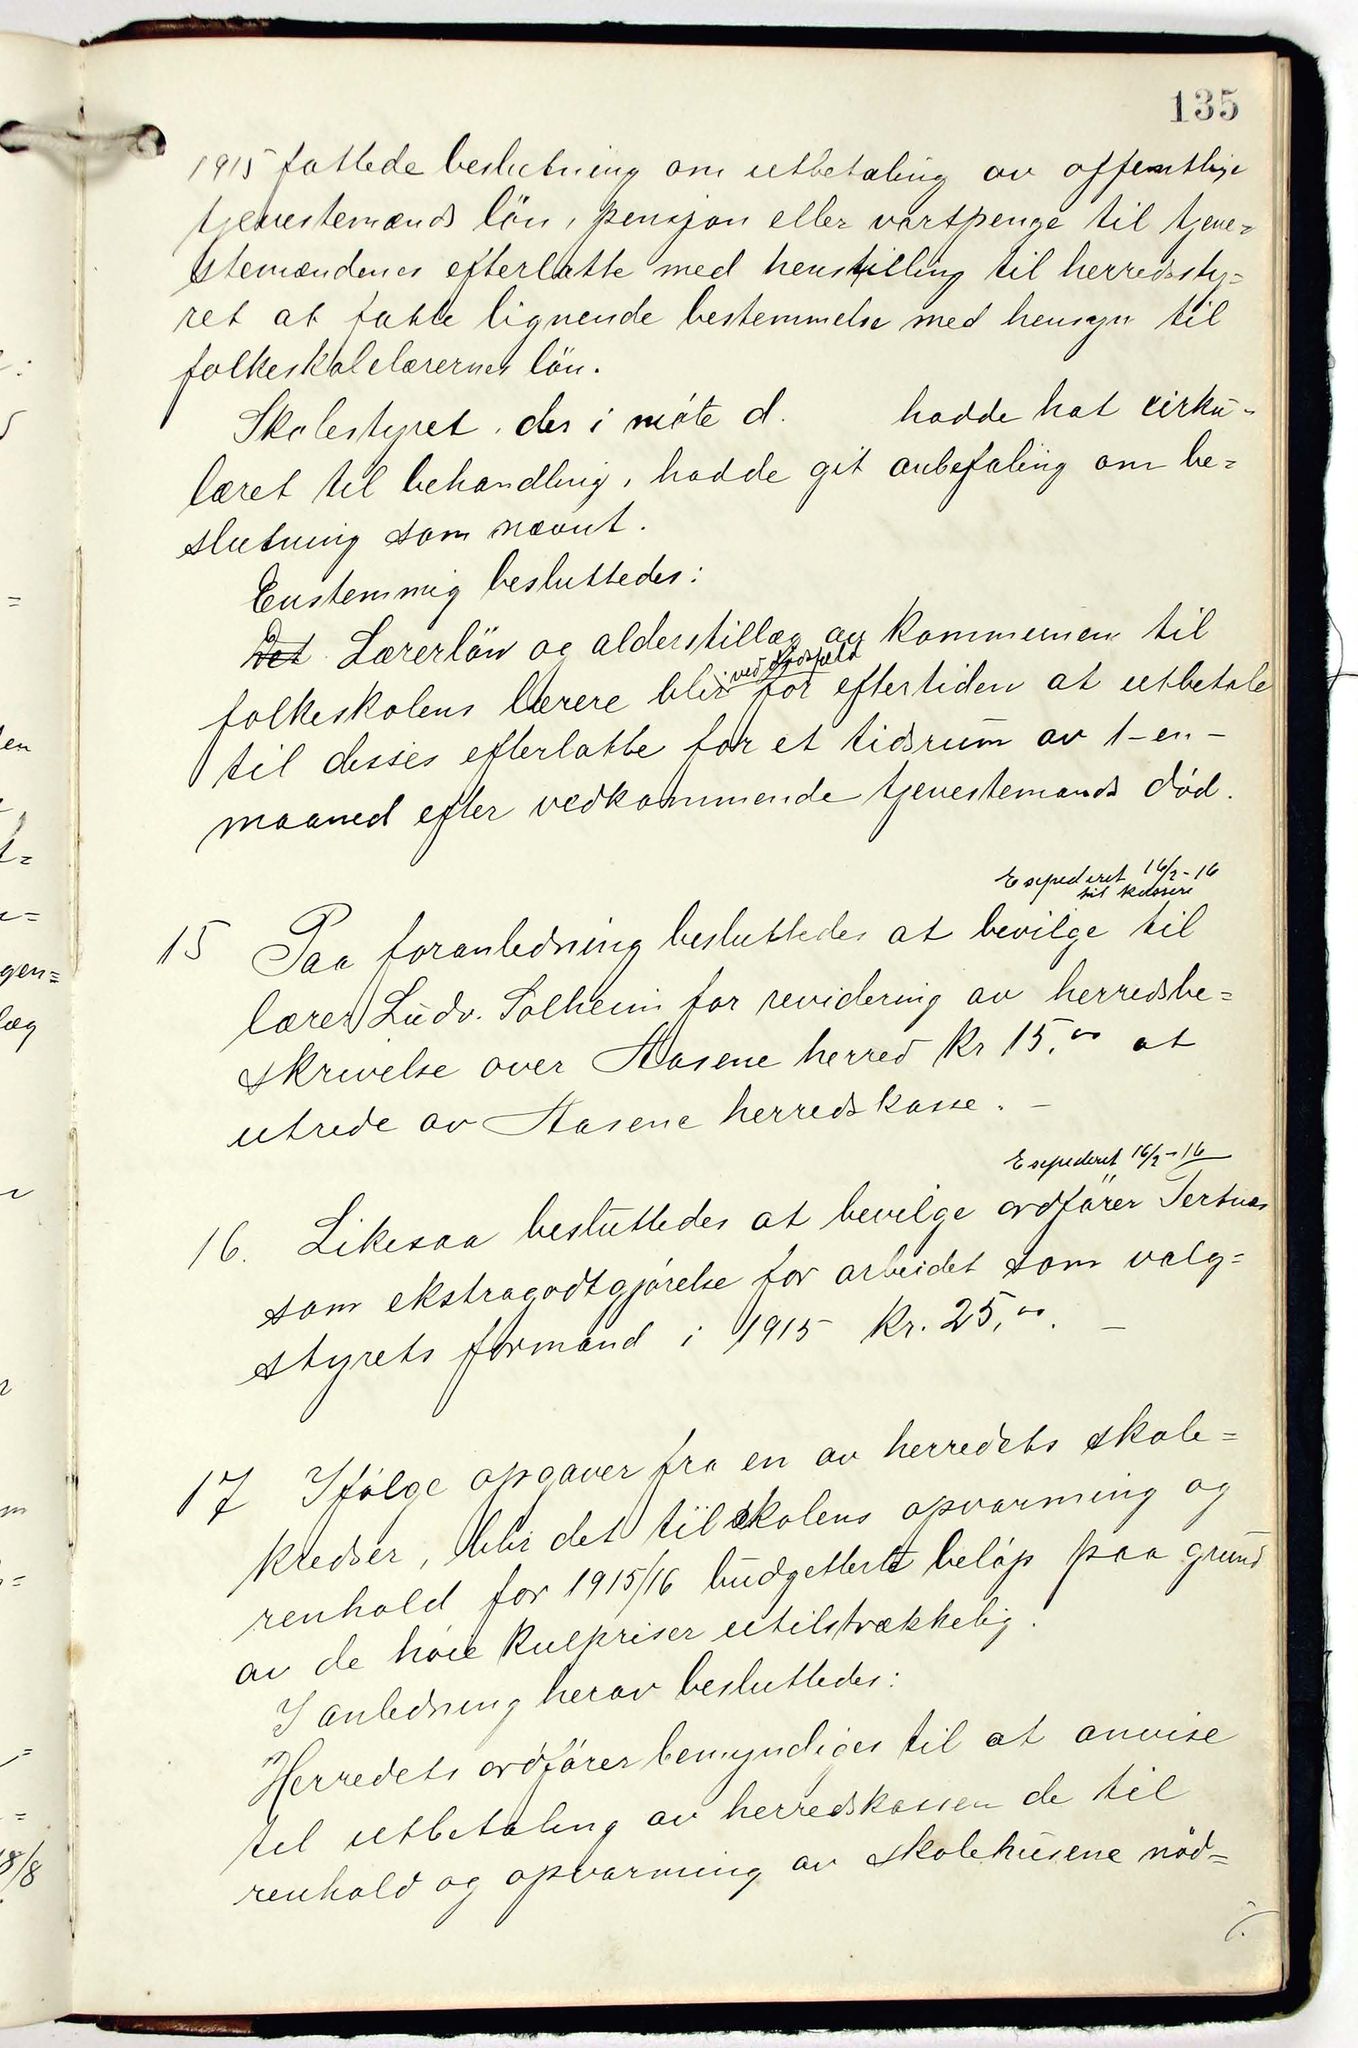 135
1915 fattede beslutning om utbetaling av offentlige
tjenestemænds løn, pensjon eller vartpenge til tjene=
stemændenes efterlatte med henstilling til herredssty=
ret at fatte lignende bestemmelse med hensyn til
folkeskolelærernes løn.
Skolestyret, der i møte d. hadde hat cirku=
læret til behandling, hadde git anbefaling om be=
slutning som nævnt.
Enstemmig besluttedes:
Det Lærerløn og alderstillæg av kommunen til
ved dødsfald
folkeskolens lærere blir for eftertiden at utbetale
til disses efterlatte for et tidsrum av 1-en-
maaned efter vedkommende tjenestemands død.
Expederet 16/2-16
til kasserer
15 Paa foranledning besluttedes at bevilge til
lærer Ludv. Solheim for revidering av herredsbe=
skrivelse over Aasene herred kr 15,00 at
utrede av Aasene herredskasse. -
Expederet 16/2-16
16. Likesaa besluttedes at bevilge ordfører Tertnæs
som ekstragodtgjørelse for arbeidet som valg=
styrets formand i 1915 kr. 25,00. -
17 Ifølge opgaver fra en av herredets skole=
kredser, blir det til skolens opvarming og
renhold for 1915/16 budgetterte beløp paa grund
av de høie kulpriser utilstrækkelig.
I anledning herav besluttedes:
Herredets ordfører bemyndiges til at anvise
til utbetaling av herredskassen de til
renhold og opvarming av skolehusene nød=